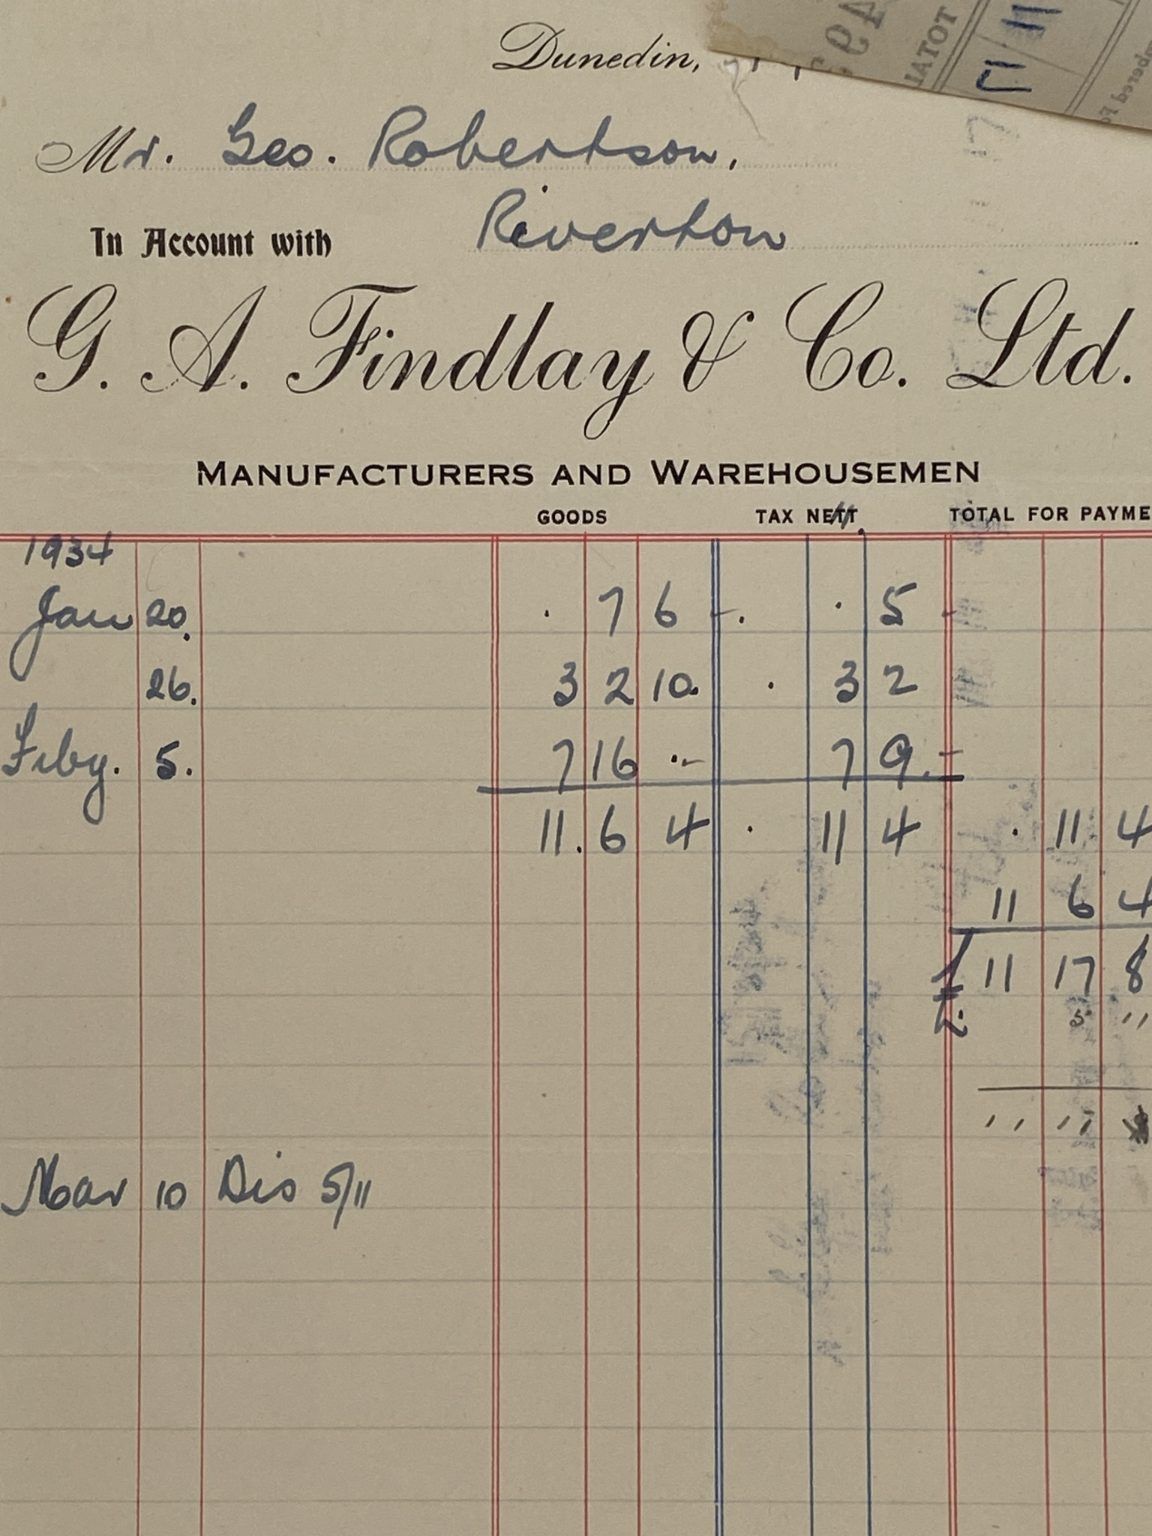 Dunedin,
TOTAL
Mr. Geo. Robertson,
Riverton
In Account with
G. A. Findlay & Co. Ltd.
MANUFACTURERS AND WAREHOUSEMEN
GOODS TAX NETT TOTAL FOR PAYME
1934
Jan 20. . 7 6 - . . 5 -
26. 3 2 10. . 3 2
Feby. 5. 7 16 .- 7 9.-
11. 6 4 . 11 4 . 11 4
11 6 4
11 17 8
5 ,,
,, ,,
Mar 10 Dis 5/11